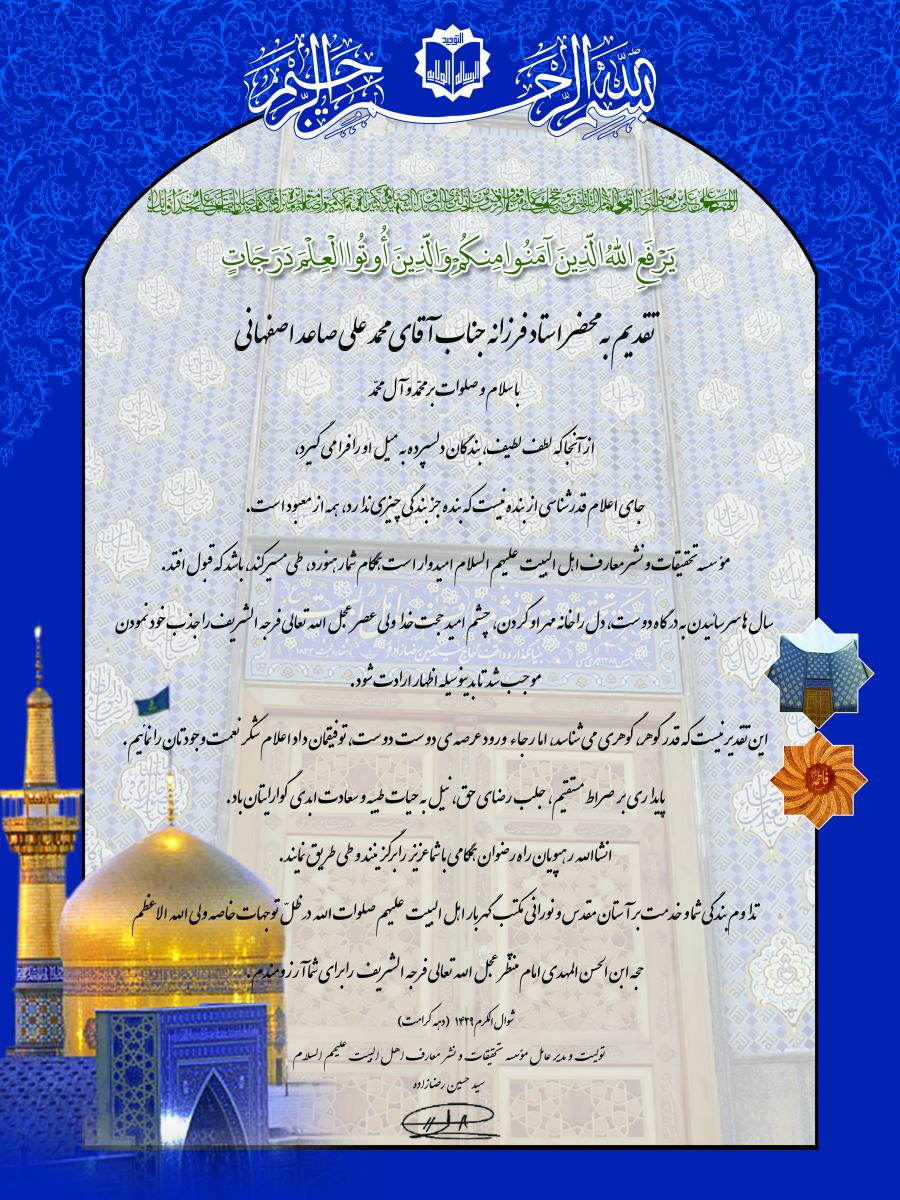 بسم الله الرحمن الرحیم
التوحید
الرسالة الولایة
یَرْفَعِ اللهُ الَّذِینَ آمَنُوا مِنکُمْ وَالَّذِینَ أُوتُوا الْعِلْمَ دَرَجَاتٍ
تقدیم به محضر استاد فرزانه جناب آقای محمد علی صاعد اصفهانی
با سلام و صلوات بر محمّد و آل محمّد
از آنجا که لطف لطیف، بندگان دلسپرده به میل او را فرا می گیرد،
جای اعلام قدرشناسی از بنده نیست که بنده جز بندگی چیزی ندارد، همه از معبود است.
مؤسسه تحقیقات و نشر معارف اهل البیت علیهم السلام امیدوار است بگام شمار هنورد، طی مسیر کند، باشد که قبول افتد.
سال ها سر سائیدن به درگاه دوست، دل را خانه مهر او کردن، چشم امید حجت خدا ولی عصر عجل الله تعالی فرجه الشریف را جذب خود نمودن
موجب شد تا بدینوسیله اظهار ارادت شود.
این تقدیر نیست که قدر گوهر، گوهری می شناسد، اما رجاء ورود عرصه ی دوست دوست، توفیقمان داد اعلام شکر نعمت وجودتان را نمائیم.
پایداری بر صراط مستقیم، جلب رضای حق، نیل به حیات طیبه و سعادت ابدی گوارایتان باد.
انشاالله رهپویان راه رضوان همگامی با شما عزیز را برگزینند و طی طریق نمایند.
تداوم بندگی شما و خدمت بر آستان مقدس و نورانی مکتب گهربار اهل البیت علیهم صلوات الله در ظلّ توجهات خاصه ولی الله الاعظم
حجه ابن الحسن المهدی امام منتظر عجل الله تعالی فرجه الشریف را برای شما آرزومندم.
شوال المکرم ۱۴۲۹ (دهه کرامت)
تولیت و مدیر عامل مؤسسه تحقیقات و نشر معارف اهل البیت علیهم السلام
سید حسین رضازاده
فاطمة